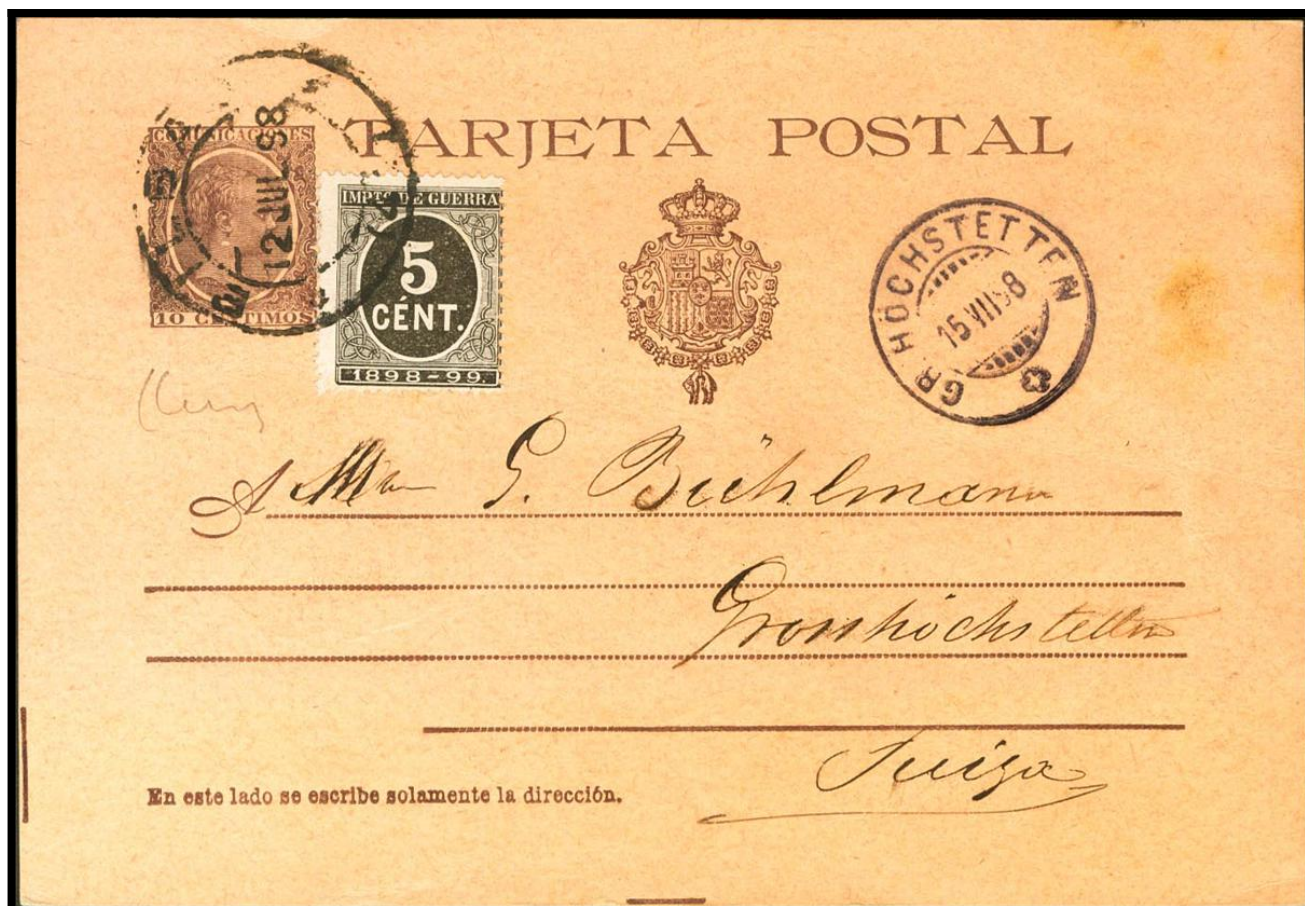 TARJETA POSTAL
COMUNICACIONES
10 CÉNTIMOS
12 JUL 98
IMPTO DE GUERRA
5
CÉNT.
1898-99.
GR HÖCHSTETTEN
15 VII 98
A G. Bühlmann
Grosshöchstetten
Suiza
En este lado se escribe solamente la dirección.